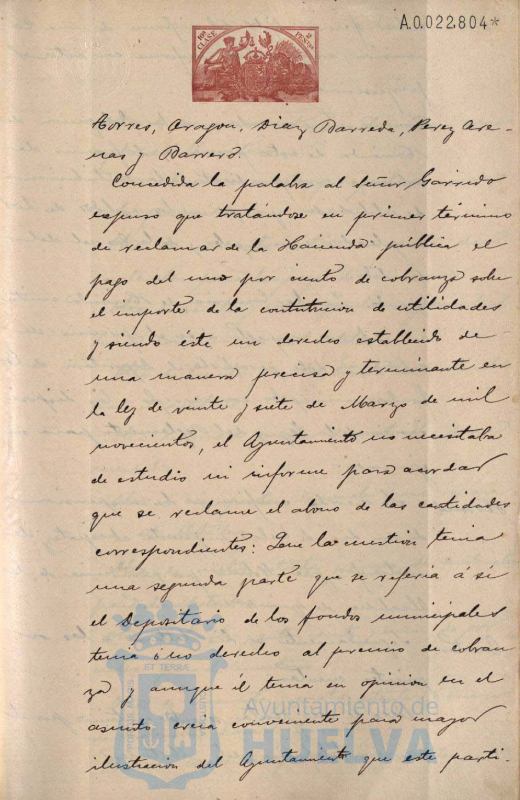 A.0.022.804*
10ª CLASE
2 PESETAS
Torres, Aragon, Diaz Barreda, Perez Are-
nas y Barrero.
Concedida la palabra al Señor Garrido
espuso que tratándose en primer término
de reclamar de la Hacienda pública el
pago del uno por ciento de cobranza sobre
el importe de la contitucion de utilidades
y siendo éste un derecho establecido de
una manera precisa y terminante en
la ley de veinte y siete de Marzo de mil
novecientos, el Ayuntamiento no necesitaba
de estudio ni informe para acordar
que se reclame el abono de las cantidades
correspondientes: Que la cuestion tenia
una segunda parte que se referia á si
el Depositario de los fondos municipales
tenia ó no derecho al premio de cobran
za y aunque él tenia su opinion en el
asunto creia conveniente para mayor
ilustracion del Ayuntamiento que este parti-
ET TERRÆ
Ayuntamiento de
HUELVA